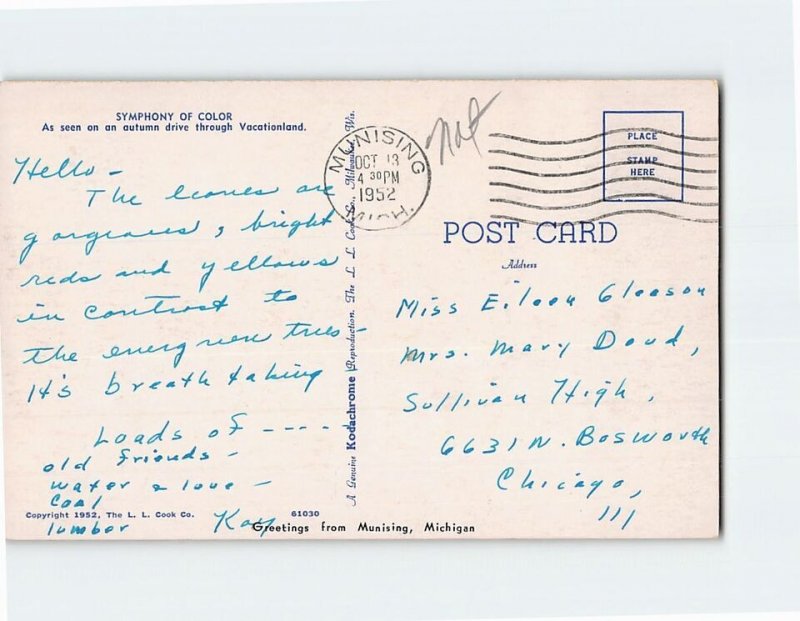 SYMPHONY OF COLOR
As seen on an autumn drive through Vacationland.
Hello -
The leaves are
gorgeous, bright
reds and yellows
in contrast to
the energreen trees -
It's breath taking
Loads of ----
old friends -
water & love -
Coal
lumber
Kay
Copyright 1952, The L. L. Cook Co.
61030
Greetings from Munising, Michigan
A Genuine Kodachrome Reproduction. The L. L. Cook Co., Milwaukee, Wis.
MUNISING
OCT 13
4 30 PM
1952
MICH.
PLACE
STAMP
HERE
POST CARD
Address
Miss Eileen Gleason
Mrs. Mary Doud,
Sullivan High,
6631 N. Bosworth
Chicago,
Ill